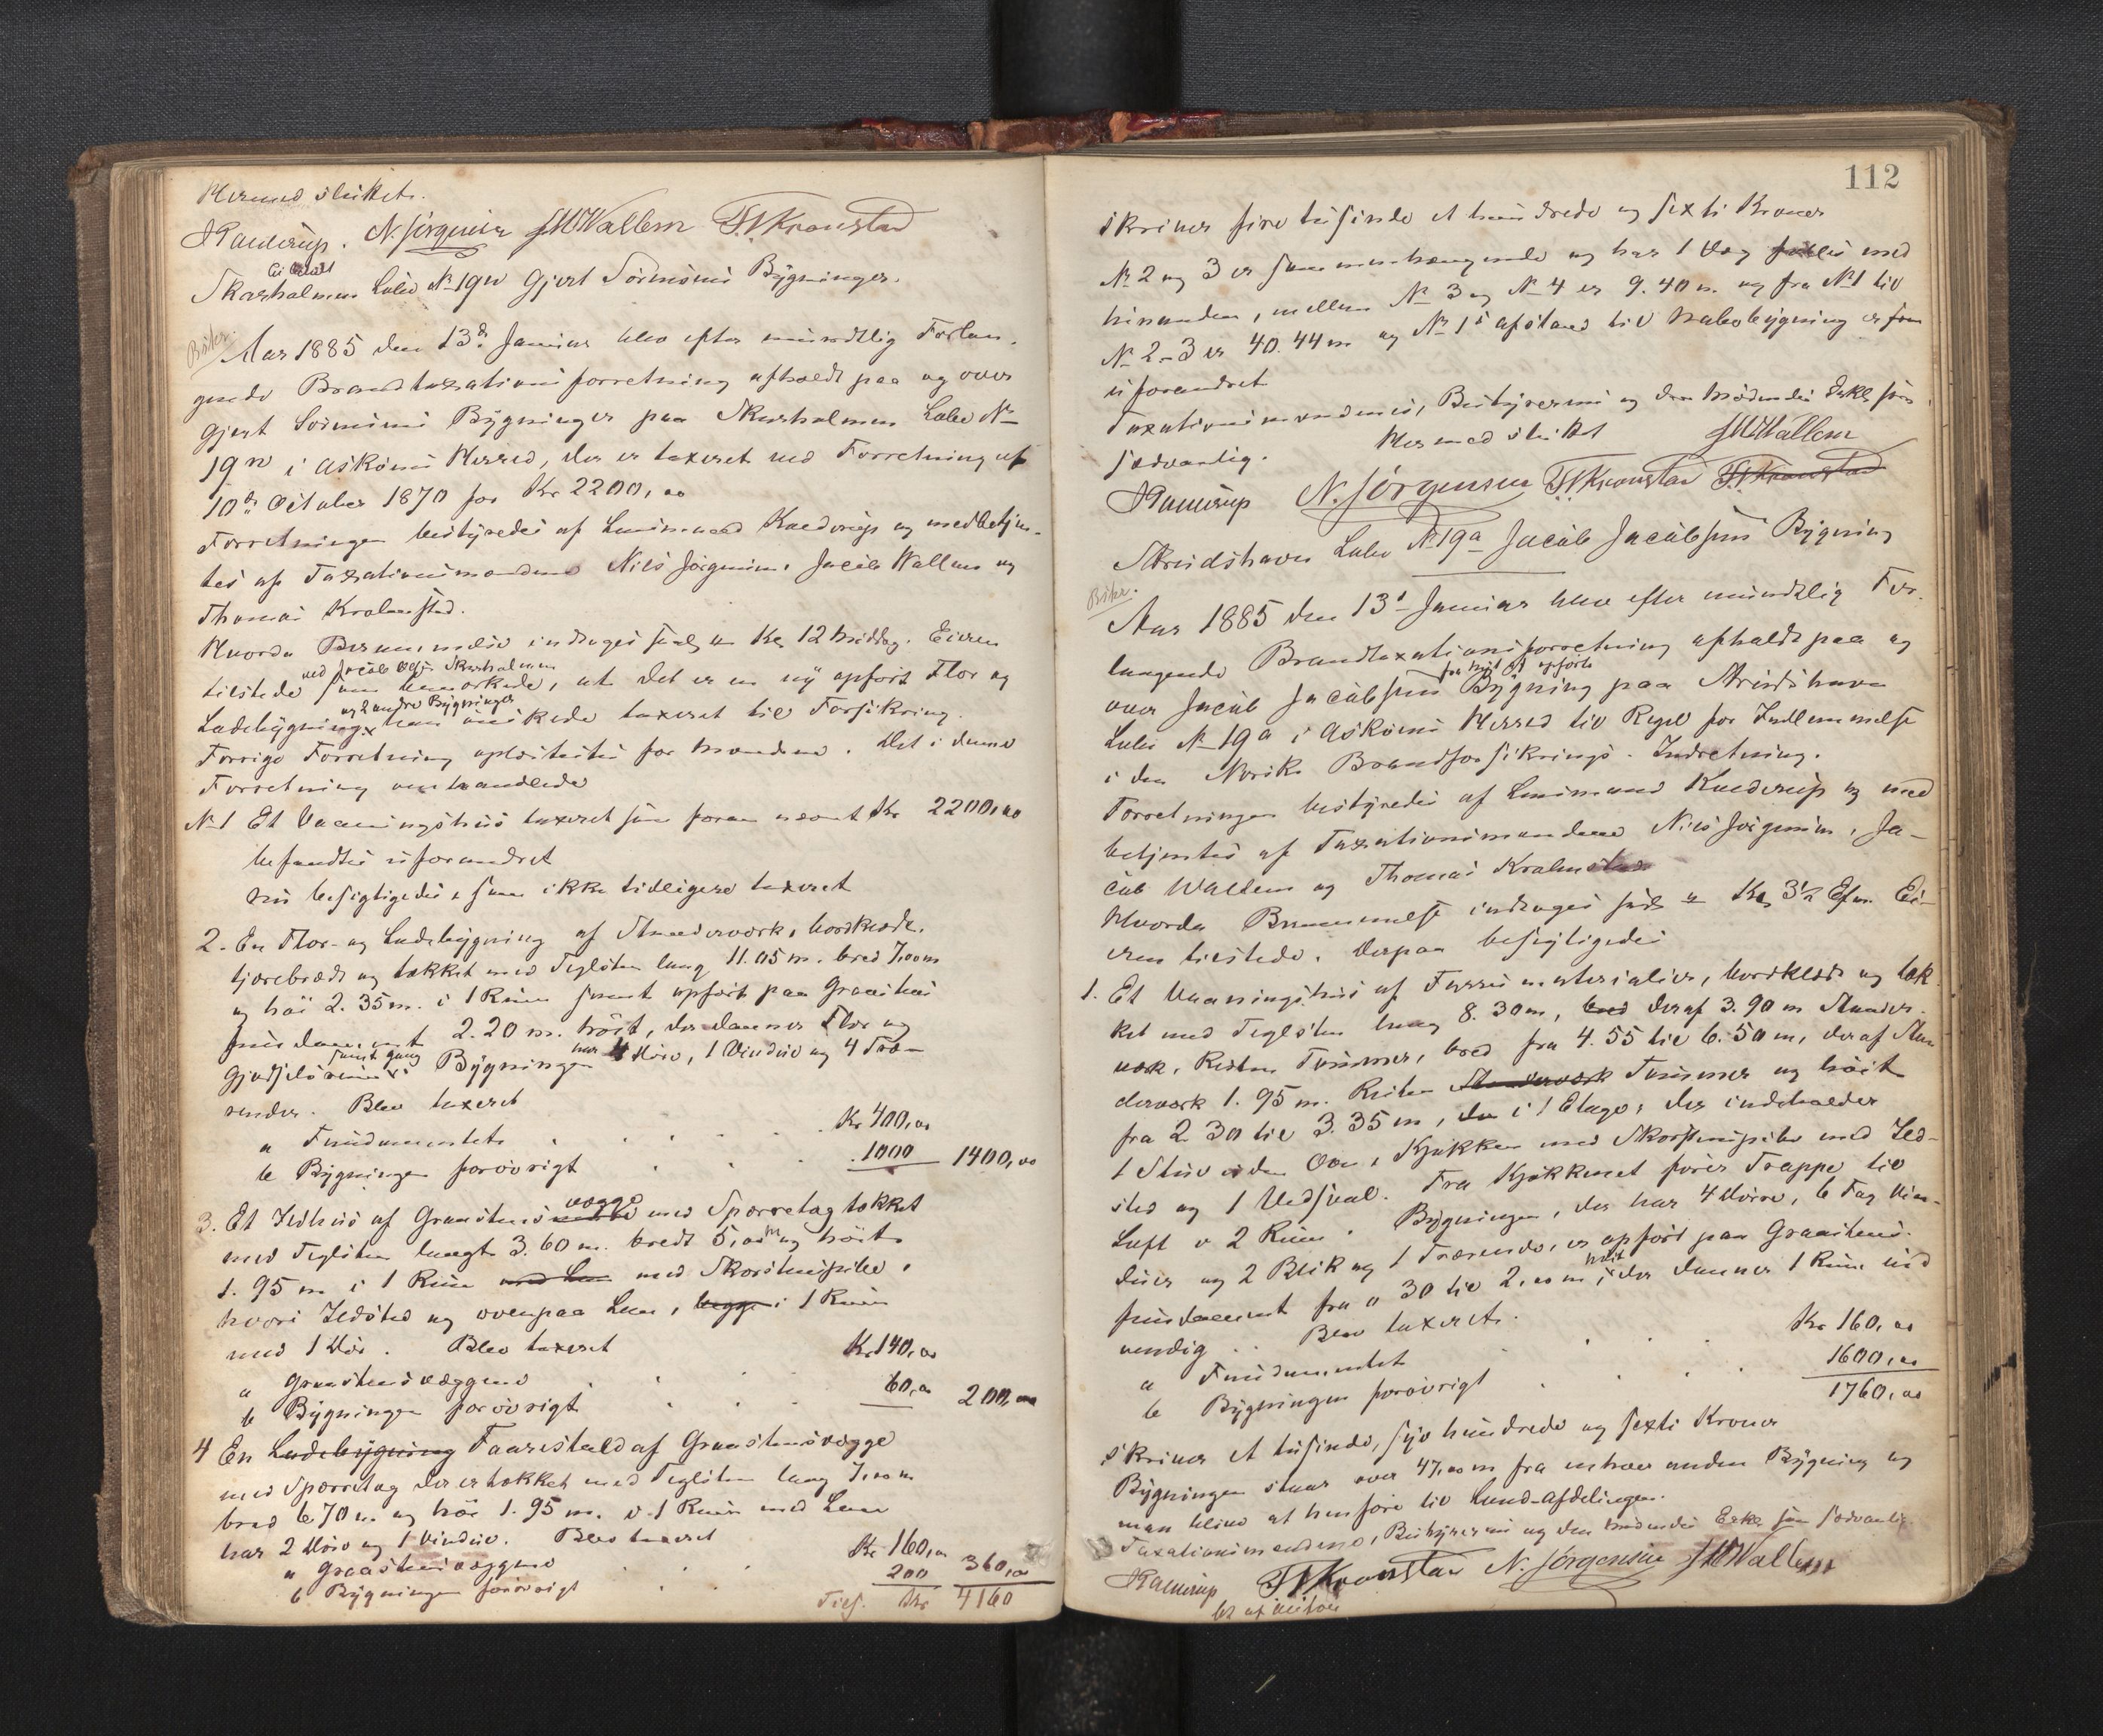 Hermed sluttet.
JKaedrup. N. Jørgensen JMWallem T.Kronstad
Ei blaat
Skarholmen Løbe No 19n Gjert Sørensens Bygninger.
Aar 1885 den 13de Januar blev efter mundtlig Forlan-
gende Brandtaxationsforretning afholdt paa og over
Gjert Sørensens Bygninger paa Skarholmen Løbe No
19n i Askøens Herred, der er taxeret ved Forretning af
10de October 1870 for Kr 2200,00
Forretningen bestyredes af Lensmand Kaedrup og medbetjen-
tes af Taxationsmændene Nils Jørgensen, Jacob Wallem og
Thomas Kralmstad.
Hvorda Berammelse indtoges saal. Kl 12 Middag. Eieren
ved Jacob Skarholmen
tilstede som bemærkede, at det er en ny opført Flor og
og 2 andre Bygninger
Ladebygning x han ønskede taxeret til Forsikring.
Forrige Forretning oplæstes for Mændene. Det i denne
Forretning omhandlede
No 1 Et Vaaningshus taxeret som foran nævnt Kr 2200,00
befandtes uforandret
nu besigtigedes, som ikke tidligere taxeret
2. En Flor- og Ladebygning af Stenderværk, bordklædt,
tjærebrædt og tækket med Teglsten lang 11.05 m. bred 7,00 m
og høi 2.35 m. i 1 Rum samt opført paa Graastens
fundament 2.20 m. høit, der danner Flor og
samt gang har
Gjødselsrum x. Bygningen 4 Døre, 1 Vindue og 4 Træ-
render. Blev taxeret
a Fundamentet . . . . Kr 400,00
b Bygningen forøvrigt . . . 1000 1400,00
vægge
3. Et Ildhus af Graastens med Sperretag tækket
med Teglsten langt 3.60 m. bredt 5,00 m og høit
1.95 m i 1 Rum med Lem med Skorstenspibe,
hvori Ildsted og ovenpaa Lem, begge i 1 Rum
med 1 Dør. Blev taxeret
a Graastensvæggene . . . Kr. 140,00
b Bygningen forøvrigt . . . 60,00 200,00
4 En Ladebygning Faarestald af Graastensvægge
med Sperretag der er tækket med Teglsten lang 7,00 m
bred 6.70 m. og høi 1.95 m. i 1 Rum med Lem
har 2 Døre og 1 Vindue. Blev taxeret
a Graastensvæggene . . . Kr 160,00
b Bygningen forøvrigt . . . 200 360,00
Tils. Kr 4160
112
skriver fire tusinde et hundrede og sexti Kroner
No 2 og 3 er sammenhængende og har 1 Væg fælles med
hinanden, mellem No 3 og No 4 er 9.40 m. og fra No 1 til
No 2-3 er 40.44 m og No 1s afstand til Nabobygning er som
uforandret
Taxationsmændenes, Bestyrerens og den Mødendes Erkl. som
sædvanlig. Hermed sluttet JMWallem
JKaedrup N. Jørgensen T.Kronstad T.Kronstad
Strudshavn Løbe No 19a Jacob Jacobsens Bygning
Aar 1885 den 13de Januar blev efter mundtlig For-
langende Brandtaxationsforretning afholdt paa og
opført
over Jacob Jacobsens Bygning paa Strudshavn
Løbe No 19a i Askøens Herred til Regel for Indlemmelse
i den Norske Brandforsikrings-Indretning.
Forretningen bestyredes af Lensmand Kaedrup og med
betjentes af Taxationsmændene Nils Jørgensen, Ja-
cob Wallem og Thomas Kralmstad
Hvorda Berammelse indtoges saal. Kl 3½ Efm. Ei-
eren tilstede. Derpaa besigtigedes
1. Et Vaaningshus af Furrumaterialier, bordklædt og tæk-
ket med Teglsten lang 8.30 m, bred deraf 3.90 m Stender-
værk, Resten Tømmer, bred fra 4.55 til 6.50 m, deraf Sten
derværk 1.95 m. Resten Stenderværk Tømmer og høit
fra 2.30 til 3.35 m, i 1 Etage, der indeholder
1 Stue uden Ovn, Kjøkken med Skorstenspibe med Ild-
sted og 1 Vedsval. Fra Kjøkkenet fører Trappe til
Loft i 2 Rum. Bygningen, der har 4 Døre, 6 Fag Vin-
duer og 2 Blik og 1 Trærende, er opført paa Graastens-
høit
fundament fra 0.30 til 2,00 m x der danner 1 Rum ind
vendig. Blev taxeret.
a Fundamentet . . . Kr 160,00
b Bygningen forøvrigt . . . 1600,00
1760,00
skriver et tusinde, syv hundrede og sexti Kroner
Bygningen staar over 47,00 m fra enhver anden Bygning og
man blive at henføre til Land-Afdelingen.
Taxationsmændenes, Bestyrerens og den Mødendes Erkl. som sædvanlig.
JKaedrup T.Kronstad N. Jørgensen JMWallem